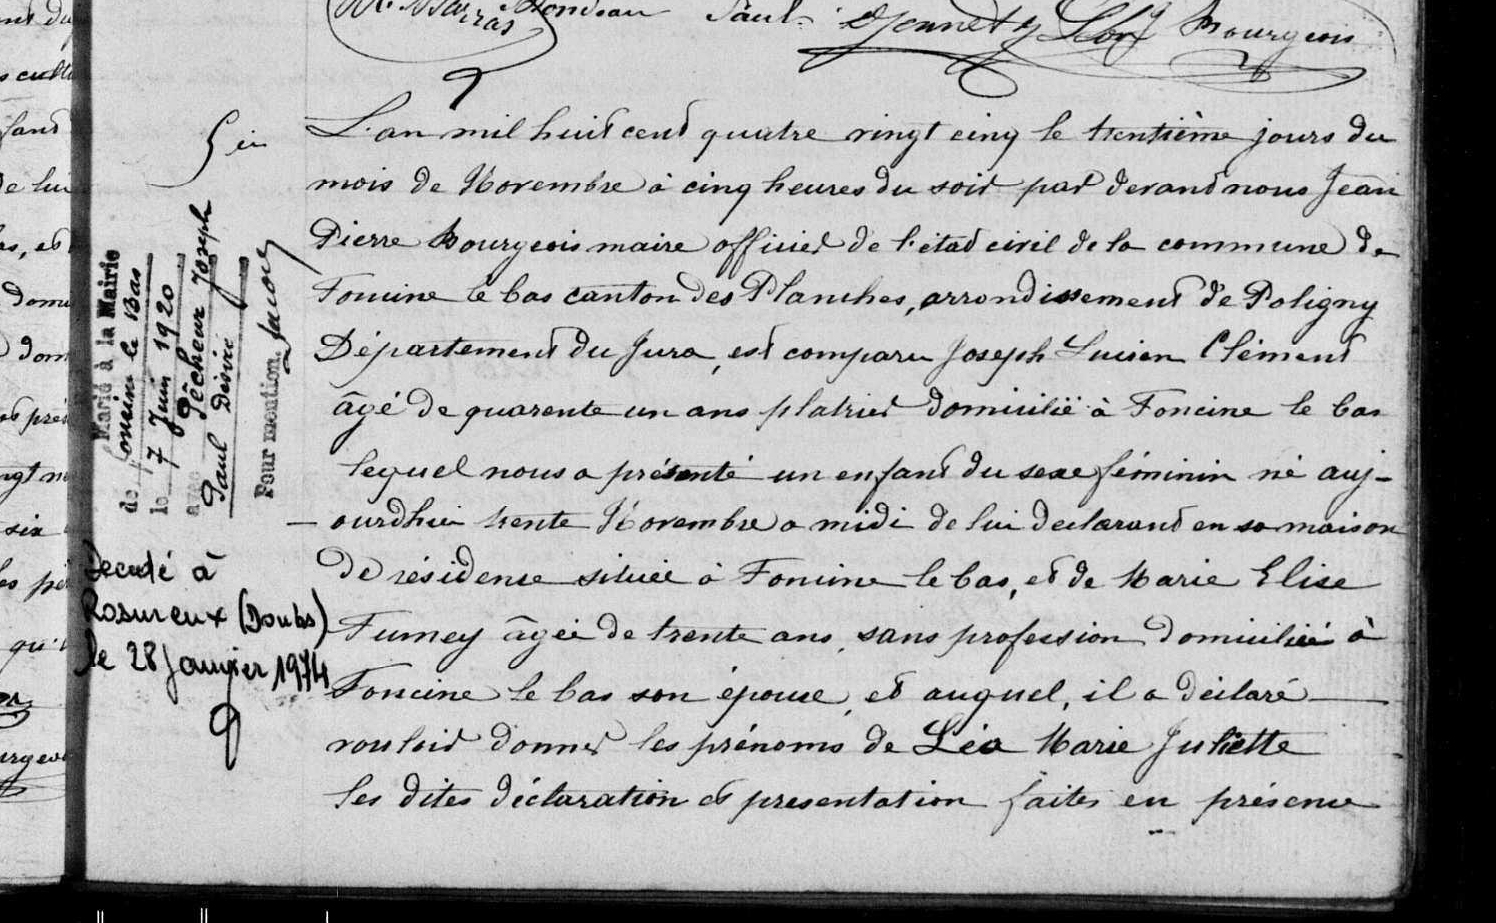 Bourgeois
L'an mil huit cent quatre vingt cinq le trentième jours du
mois de Novembre à cinq heures du soir par devant nous Jean
Pierre Bourgeois maire officier de l'état civil de la commune de
Foncine le bas canton des Planches, arrondissement de Poligny
Département du Jura, est comparu Joseph Lucien Clément
âgé de quarante un ans platrier domicilié à Foncine le bas
lequel nous a présenté un enfant du sexe féminin né auj-
ourdhui trente Novembre a midi de lui declarant en sa maison
de résidense située à Foncine le bas, et de Marie Elise
Fumey âgée de trente ans, sans profession domiciliée à
Foncine le bas son épouse, et auquel, il a déclaré
vouloir donner les prénoms de Léa Marie Juliette
les dites déclaration et presentation faites en présence
Marié à la Mairie
de Foncine le Bas
le 7 Juin 1920
avec Pêcheur Joseph
Paul Désiré
Pour mention,
Decedé à
Rosureux (Doubs)
le 28 Janvier 1974